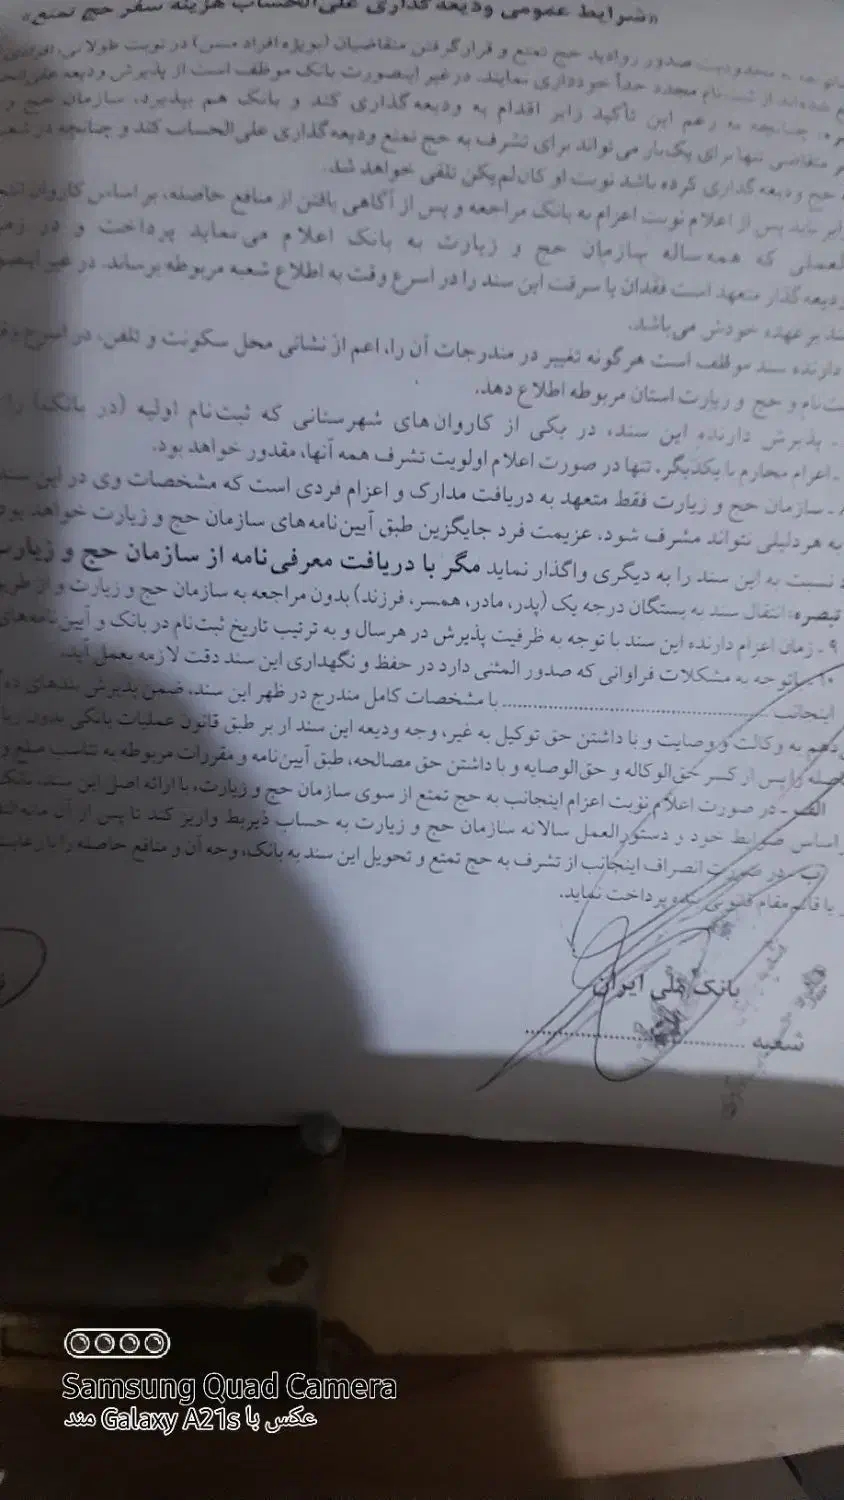 «شرایط عمومی ودیعه‌گذاری علی‌الحساب هزینه سفر حج تمتع»
محدودیت صدور روادید حج تمتع و قرار گرفتن متقاضیان (بویژه افراد مسن) در نوبت طولانی، افرادی
شده‌اند از ثبت‌نام مجدد جداً خودداری نمایند. در غیر اینصورت بانک موظف است از پذیرش ودیعه
چنانچه به رغم این تأکید زایر اقدام به ودیعه‌گذاری کند و بانک هم بپذیرد، سازمان حج و
متقاضی تنها برای یک‌بار می‌تواند برای تشرف به حج تمتع ودیعه‌گذاری علی‌الحساب کند و چنانچه در
حج ودیعه‌گذاری کرده باشد نوبت او کان‌لم‌یکن تلقی خواهد شد.
باید پس از اعلام نوبت اعزام به بانک مراجعه و پس از آگاهی یافتن از منافع حاصله، بر اساس کاروان
که همه ساله سازمان حج و زیارت به بانک اعلام می‌نماید پرداخت و در
ودیعه‌گذار متعهد است فقدان یا سرقت این سند را در اسرع وقت به اطلاع شعبه مربوطه برساند. در غیر
بر عهده خودش می‌باشد.
دارنده سند موظف است هرگونه تغییر در مندرجات آن را، اعم از نشانی محل سکونت و تلفن، در اسرع
و حج و زیارت استان مربوطه اطلاع دهد.
ـ پذیرش دارنده این سند، در یکی از کاروان‌های شهرستانی که ثبت‌نام اولیه (در بانک) را
ـ اعزام محارم با یکدیگر، تنها در صورت اعلام اولویت تشرف همه آنها، مقدور خواهد بود.
ـ سازمان حج و زیارت فقط متعهد به دریافت مدارک و اعزام فردی است که مشخصات وی در این سند
به هر دلیلی نتواند مشرف شود، عزیمت فرد جایگزین طبق آیین‌نامه‌های سازمان حج و زیارت خواهد بود
نسبت به این سند را به دیگری واگذار نماید مگر با دریافت معرفی‌نامه از سازمان حج و زیارت
تبصره: انتقال سند به بستگان درجه یک (پدر، مادر، همسر، فرزند) بدون مراجعه به سازمان حج و زیارت و از
۹ ـ زمان اعزام دارنده این سند با توجه به ظرفیت پذیرش در هر سال و به ترتیب تاریخ ثبت‌نام در بانک و آیین‌نامه‌های
۱۰ ـ با توجه به مشکلات فراوانی که صدور المثنی دارد در حفظ و نگهداری این سند دقت لازمه بعمل آید.
اینجانب ........................................ با مشخصات کامل مندرج در ظهر این سند، ضمن پذیرش بندهای
به وکالت و وصایت و با داشتن حق توکیل به غیر، وجه ودیعه این سند را بر طبق قانون عملیات بانکی بدون ربا
را پس از کسر حق‌الوکاله و حق‌الوصایه و با داشتن حق مصالحه، طبق آیین‌نامه و مقررات مربوطه به تناسب مبلغ و
الف ـ در صورت اعلام نوبت اعزام اینجانب به حج تمتع از سوی سازمان حج و زیارت، با ارائه اصل این سند، بانک
اساس ضوابط خود و دستورالعمل سالانه سازمان حج و زیارت به حساب ذیربط واریز کند تا پس از آن
ب ـ در صورت انصراف اینجانب از تشرف به حج تمتع و تحویل این سند به بانک، وجه آن و منافع حاصله را با رعایت
یا قائم‌مقام قانونی بنده پرداخت نماید.
بانک ملی ایران
شعبه ........................................
Samsung Quad Camera
عکس با Galaxy A21s مند